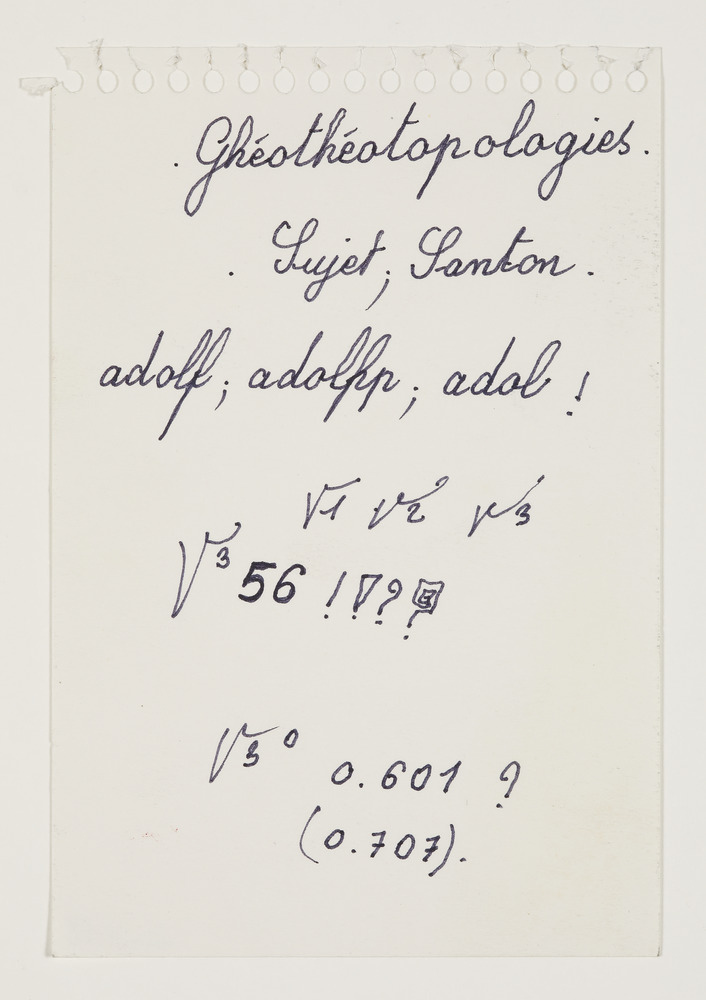 . Ghéothéotopologies.
. Sujet; Santon.
adolf; adolphp; adol!
√1 √2 √3
√3 56 !?
√3 0 0.601 ?
(0.707).